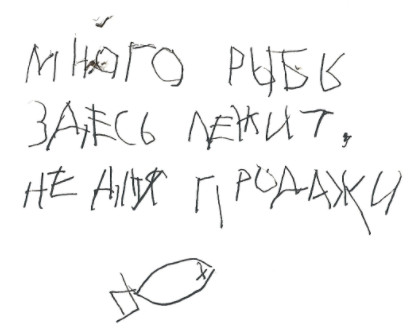 МНОГО РЫБЫ
ЗДЕСЬ ЛЕЖИТ,
НЕ ДЛЯ ПРОДАЖИ